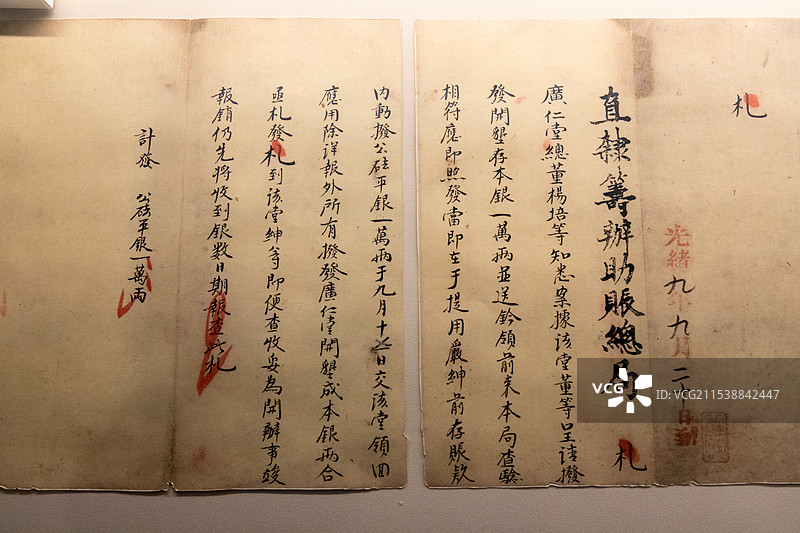 札
光緒九年九月二十日到
直隸籌辦助賑總局 札
廣仁堂總董楊培等知悉案據該堂董等呈請撥
發開墾存本銀一萬兩並送鈐領前來本局查驗
相符應即照發當即在于提用嚴紳前存賑款
內動撥公砝平銀一萬兩于九月十 日交該堂領回
應用除詳報外所有撥發廣仁堂開墾成本銀兩合
亟札發札到該堂紳等即便查收妥為開辦事竣
報銷仍先將收到銀數日期報查此札
計發 公砝平銀一萬兩
VCG
VCG.COM
ID:VCG211538842447